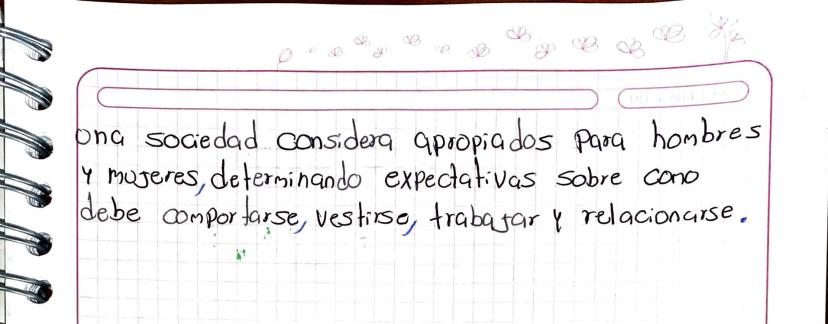 una sociedad considera apropiados para hombres
y mujeres, determinando expectativas sobre como
debe comportarse, vestirse, trabajar y relacionarse.